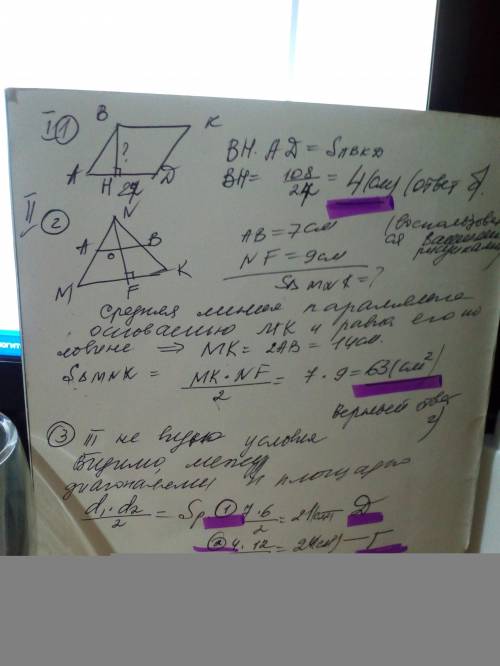 I ① B K
?
A H 27 D
BH · AD = SABKD
BH = 108/27 = 4 (см) (ответ б).
II ② N
A B
O
M F K
AB = 7 см
NF = 9 см
SΔMNK = ?
Средняя линия параллельна
основанию MK и равна его по
ловине ⇒ MK = 2AB = 14 см.
SΔMNK = MK · NF/2 = 7 · 9 = 63 (см²)
верный ответ
г)
③ III не вижу условия
Видимо, между
диагоналями и площадью
d₁ · d₂/2 = Sр ① 7 · 6/2 = 21 Д
② 4 · 12 = 24 (см²) — Г